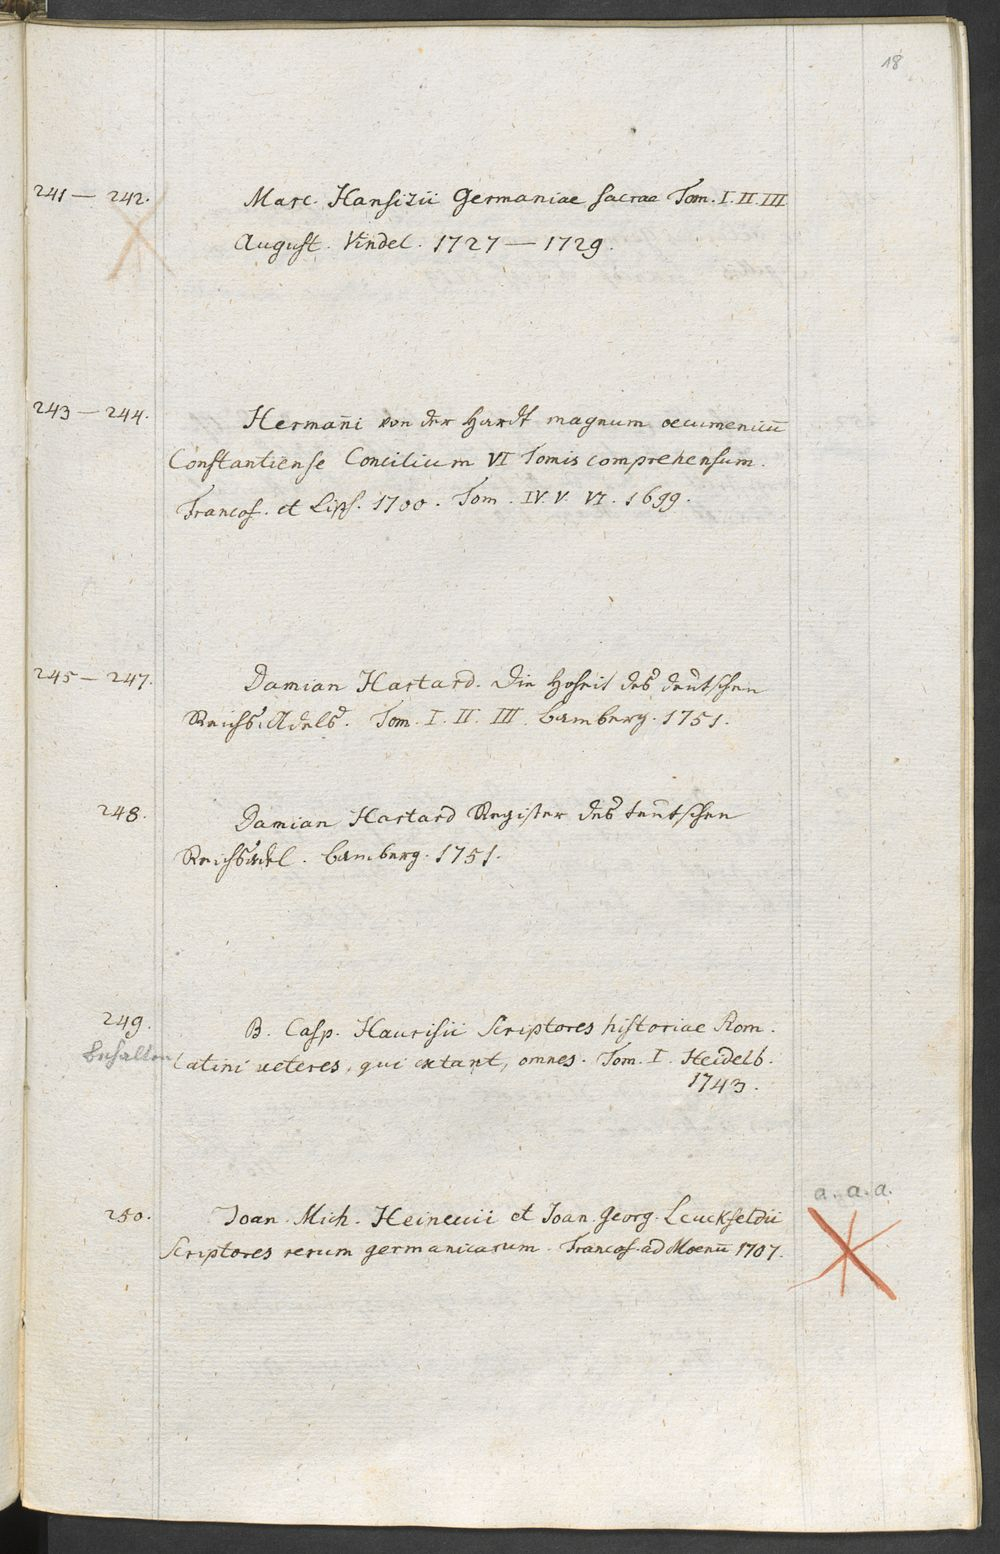 18
241 — 242. Marc. Hansizii Germaniae sacrae Tom. I. II. III
August. Vindel. 1727 — 1729.
243 — 244. Hermañi von der Hardt magnum oecumenicū
Constantiense Concilium VI Tomis comprehensum.
Francof. et Lips. 1700. Tom. IV. V. VI. 1699.
245 — 247. Damian Hartard. Die Hoheit des deutschen
Reichs Adels. Tom. I. II. III. Bamberg. 1751.
248. Damian Hartard Register des teutschen
Reichsadel. Bamberg. 1751.
249. B. Casp. Haurisii Scriptores historiae Rom.
behalten latini veteres, qui extant, omnes. Tom. I. Heidelb.
1743.
a. a. a.
250. Joan. Mich. Heineccii et Joan. Georg. Leuckfeldii
Scriptores rerum germanicarum. Francof. ad Moenū 1707.